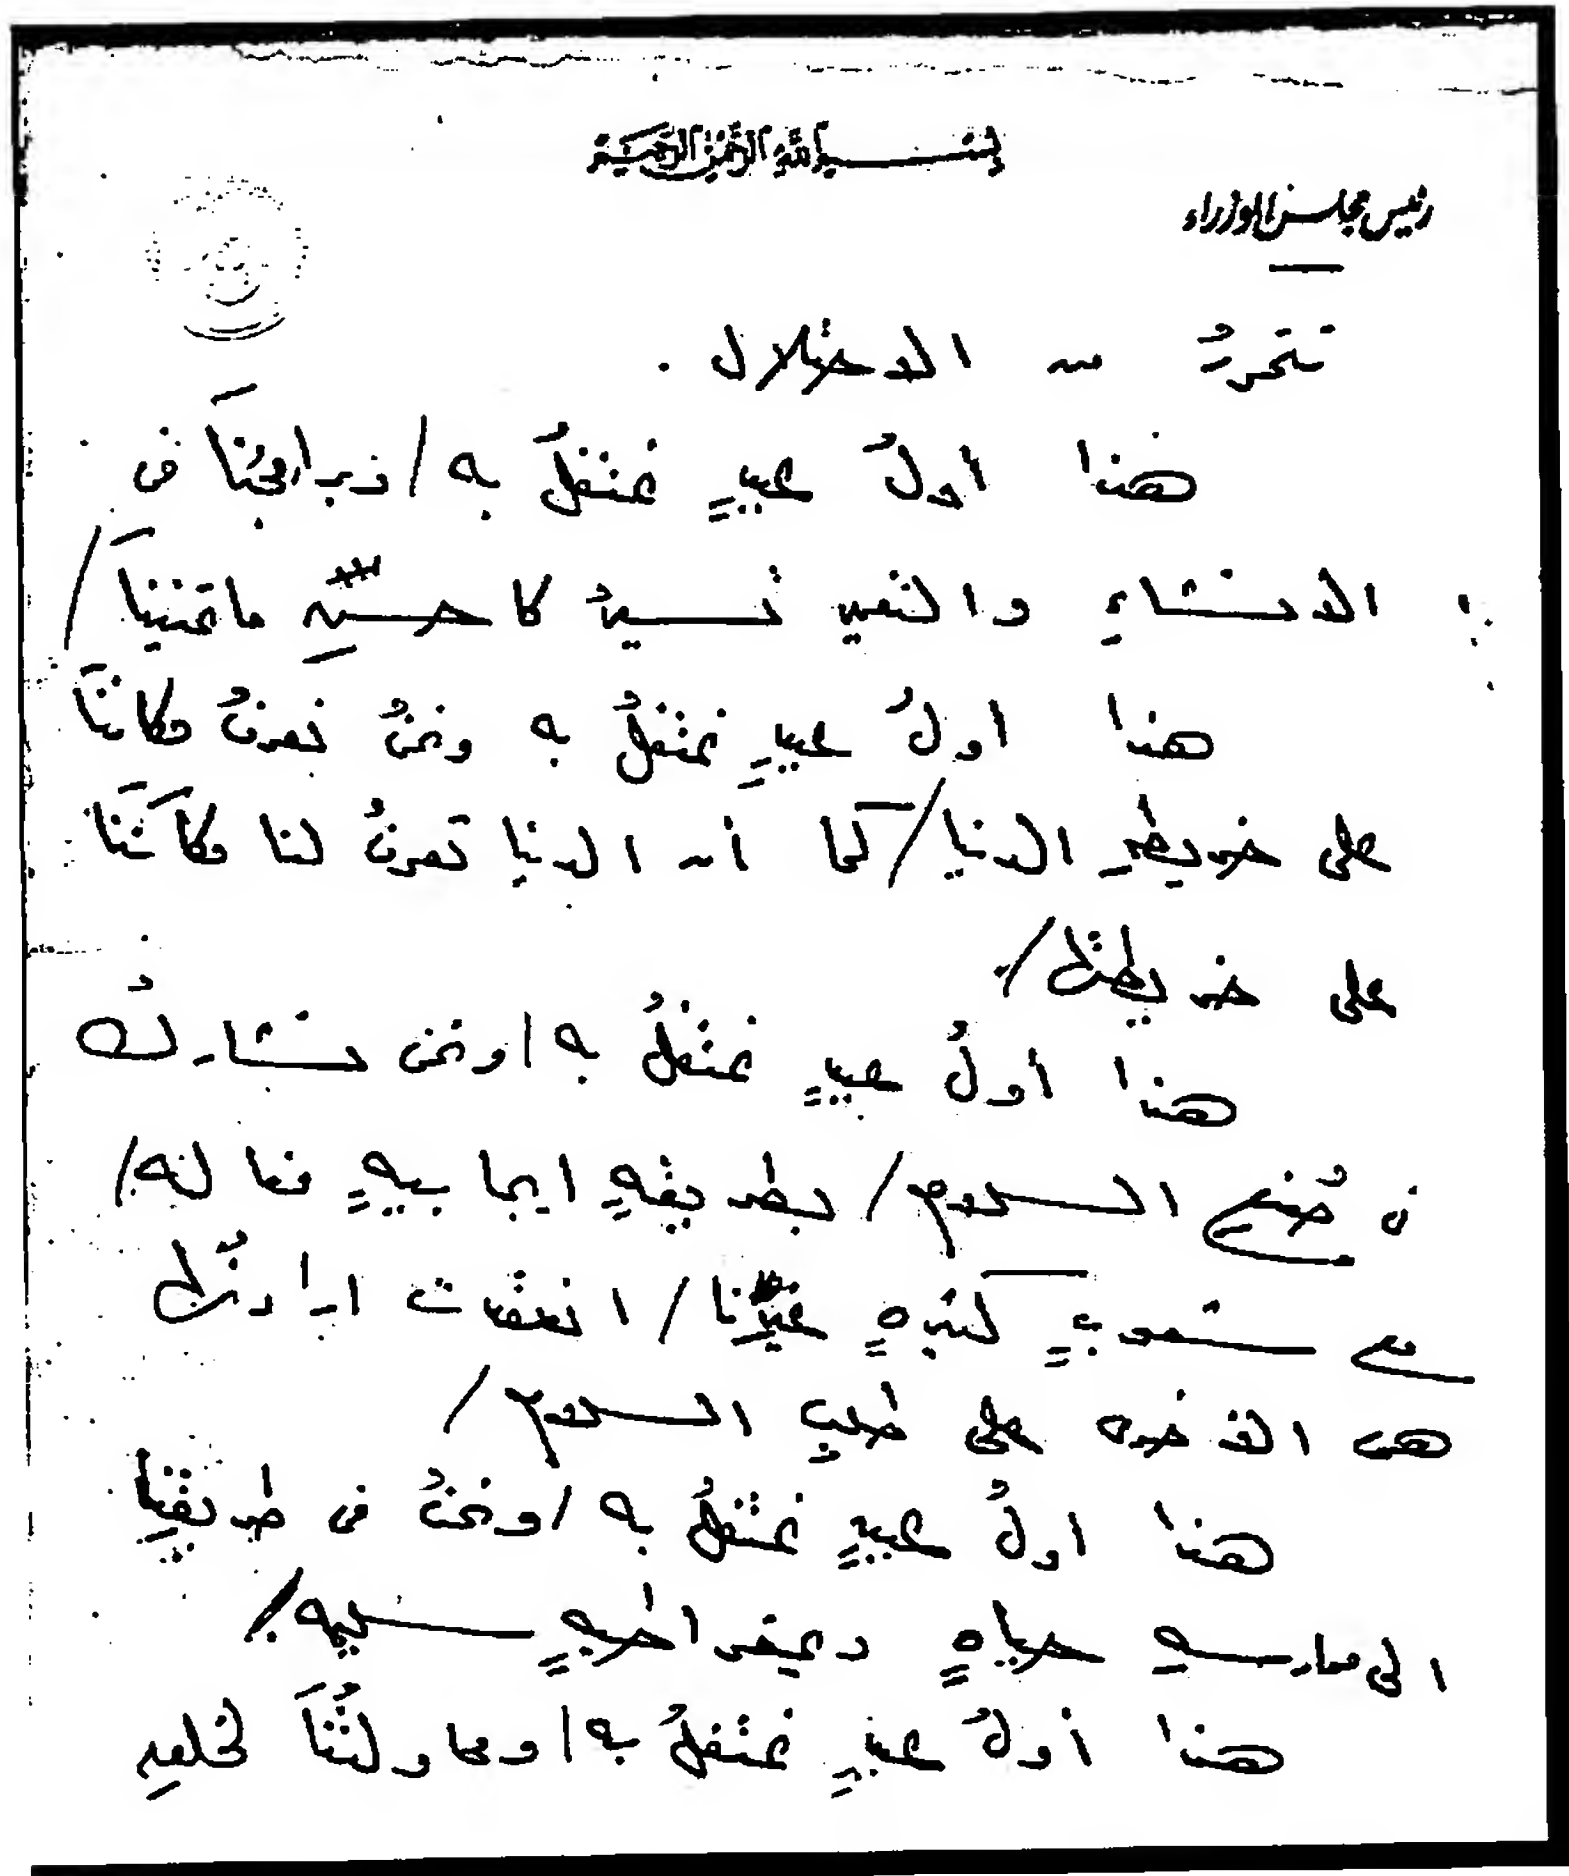 بسم الله الرحمن الرحيم
رئيس مجلس الوزراء
تتحررُ من الاحتلال .
هذا اولُ عيدٍ نحتفلُ به / وبرامجُنَا فى
الانشاءِ والتعمير تسيرُ كاحسنِ ماتمنينَا /
هذا اولُ عيدٍ نحتفلُ به ونحنُ نعرفُ مكاننَا
على خريطةِ الدنيا / كما أن الدنيا تعرفُ لنا مكانَنَا
على خريطتها /
هذا أولُ عيدٍ نحتفلُ به / ونحن نشاركُ
فى صُنعِ السلام / بطريقةٍ ايجابيةٍ فعاله /
مع شعوبٍ كثيرهٍ غيرنا / اتفقت ارادتُها
هى الاخرى على طلبِ السلام /
هذا اولُ عيدٍ نحتفلُ به / ونحنُ فى طريقِنا
الى ممارسهِ حياهٍ ديمقراطيهٍ سليمه /
هذا أولُ عيدٍ نحتفلُ به / ومحاولتُنَا